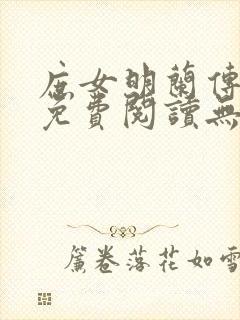 庶女明蘭傳
免費閱讀無
簾卷落花如雪